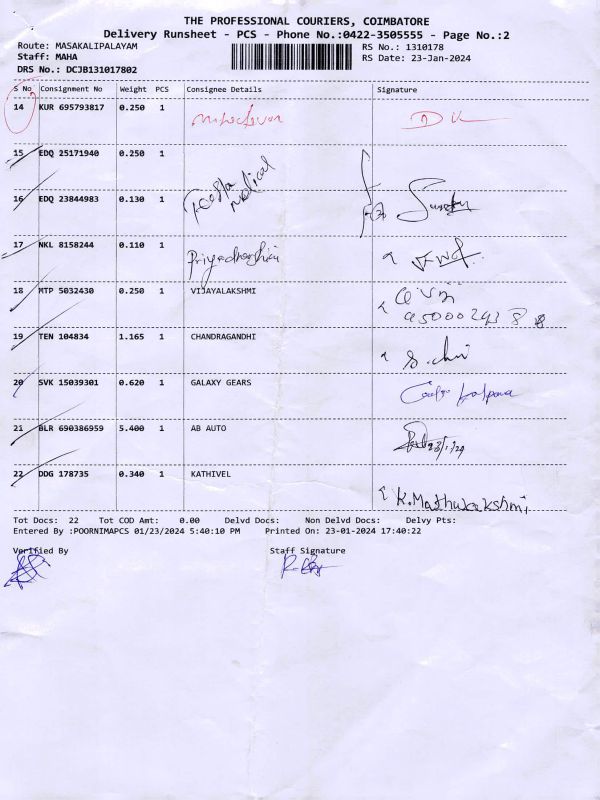 THE PROFESSIONAL COURIERS, COIMBATORE
Delivery Runsheet - PCS - Phone No.:0422-3505555 - Page No.:2
Route: MASAKALIPALAYAM RS No.: 1310178
Staff: MAHA RS Date: 23-Jan-2024
DRS No.: DCJB131017802
S No Consignment No Weight PCS Consignee Details Signature
14 KUR 695793817 0.250 1
15 EDQ 25171940 0.250 1
16 EDQ 23844983 0.130 1 medical
17 NKL 8158244 0.110 1 Priyadharshini
18 MTP 5032430 0.250 1 VIJAYALAKSHMI
19 TEN 104834 1.165 1 CHANDRAGANDHI
20 SVK 15039301 0.620 1 GALAXY GEARS
21 BLR 690386959 5.400 1 AB AUTO 23/1/24
22 DDG 178735 0.340 1 KATHIVEL K.Mathulakshmi
Tot Docs: 22 Tot COD Amt: 0.00 Delvd Docs: Non Delvd Docs: Delvy Pts:
Entered By :POORNIMAPCS 01/23/2024 5:40:10 PM Printed On: 23-01-2024 17:40:22
Verified By Staff Signature